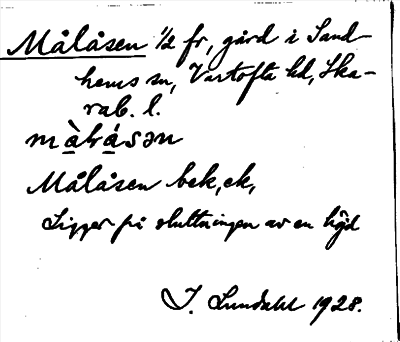 Målåsen 1/2 fr, gård i Sand-
hems sn, Vartofta hd, Ska-
rab. l.
màlásən
Målåsen bek, ek,
Ligger på sluttningen av en höjd
J. Lundahl 1928.